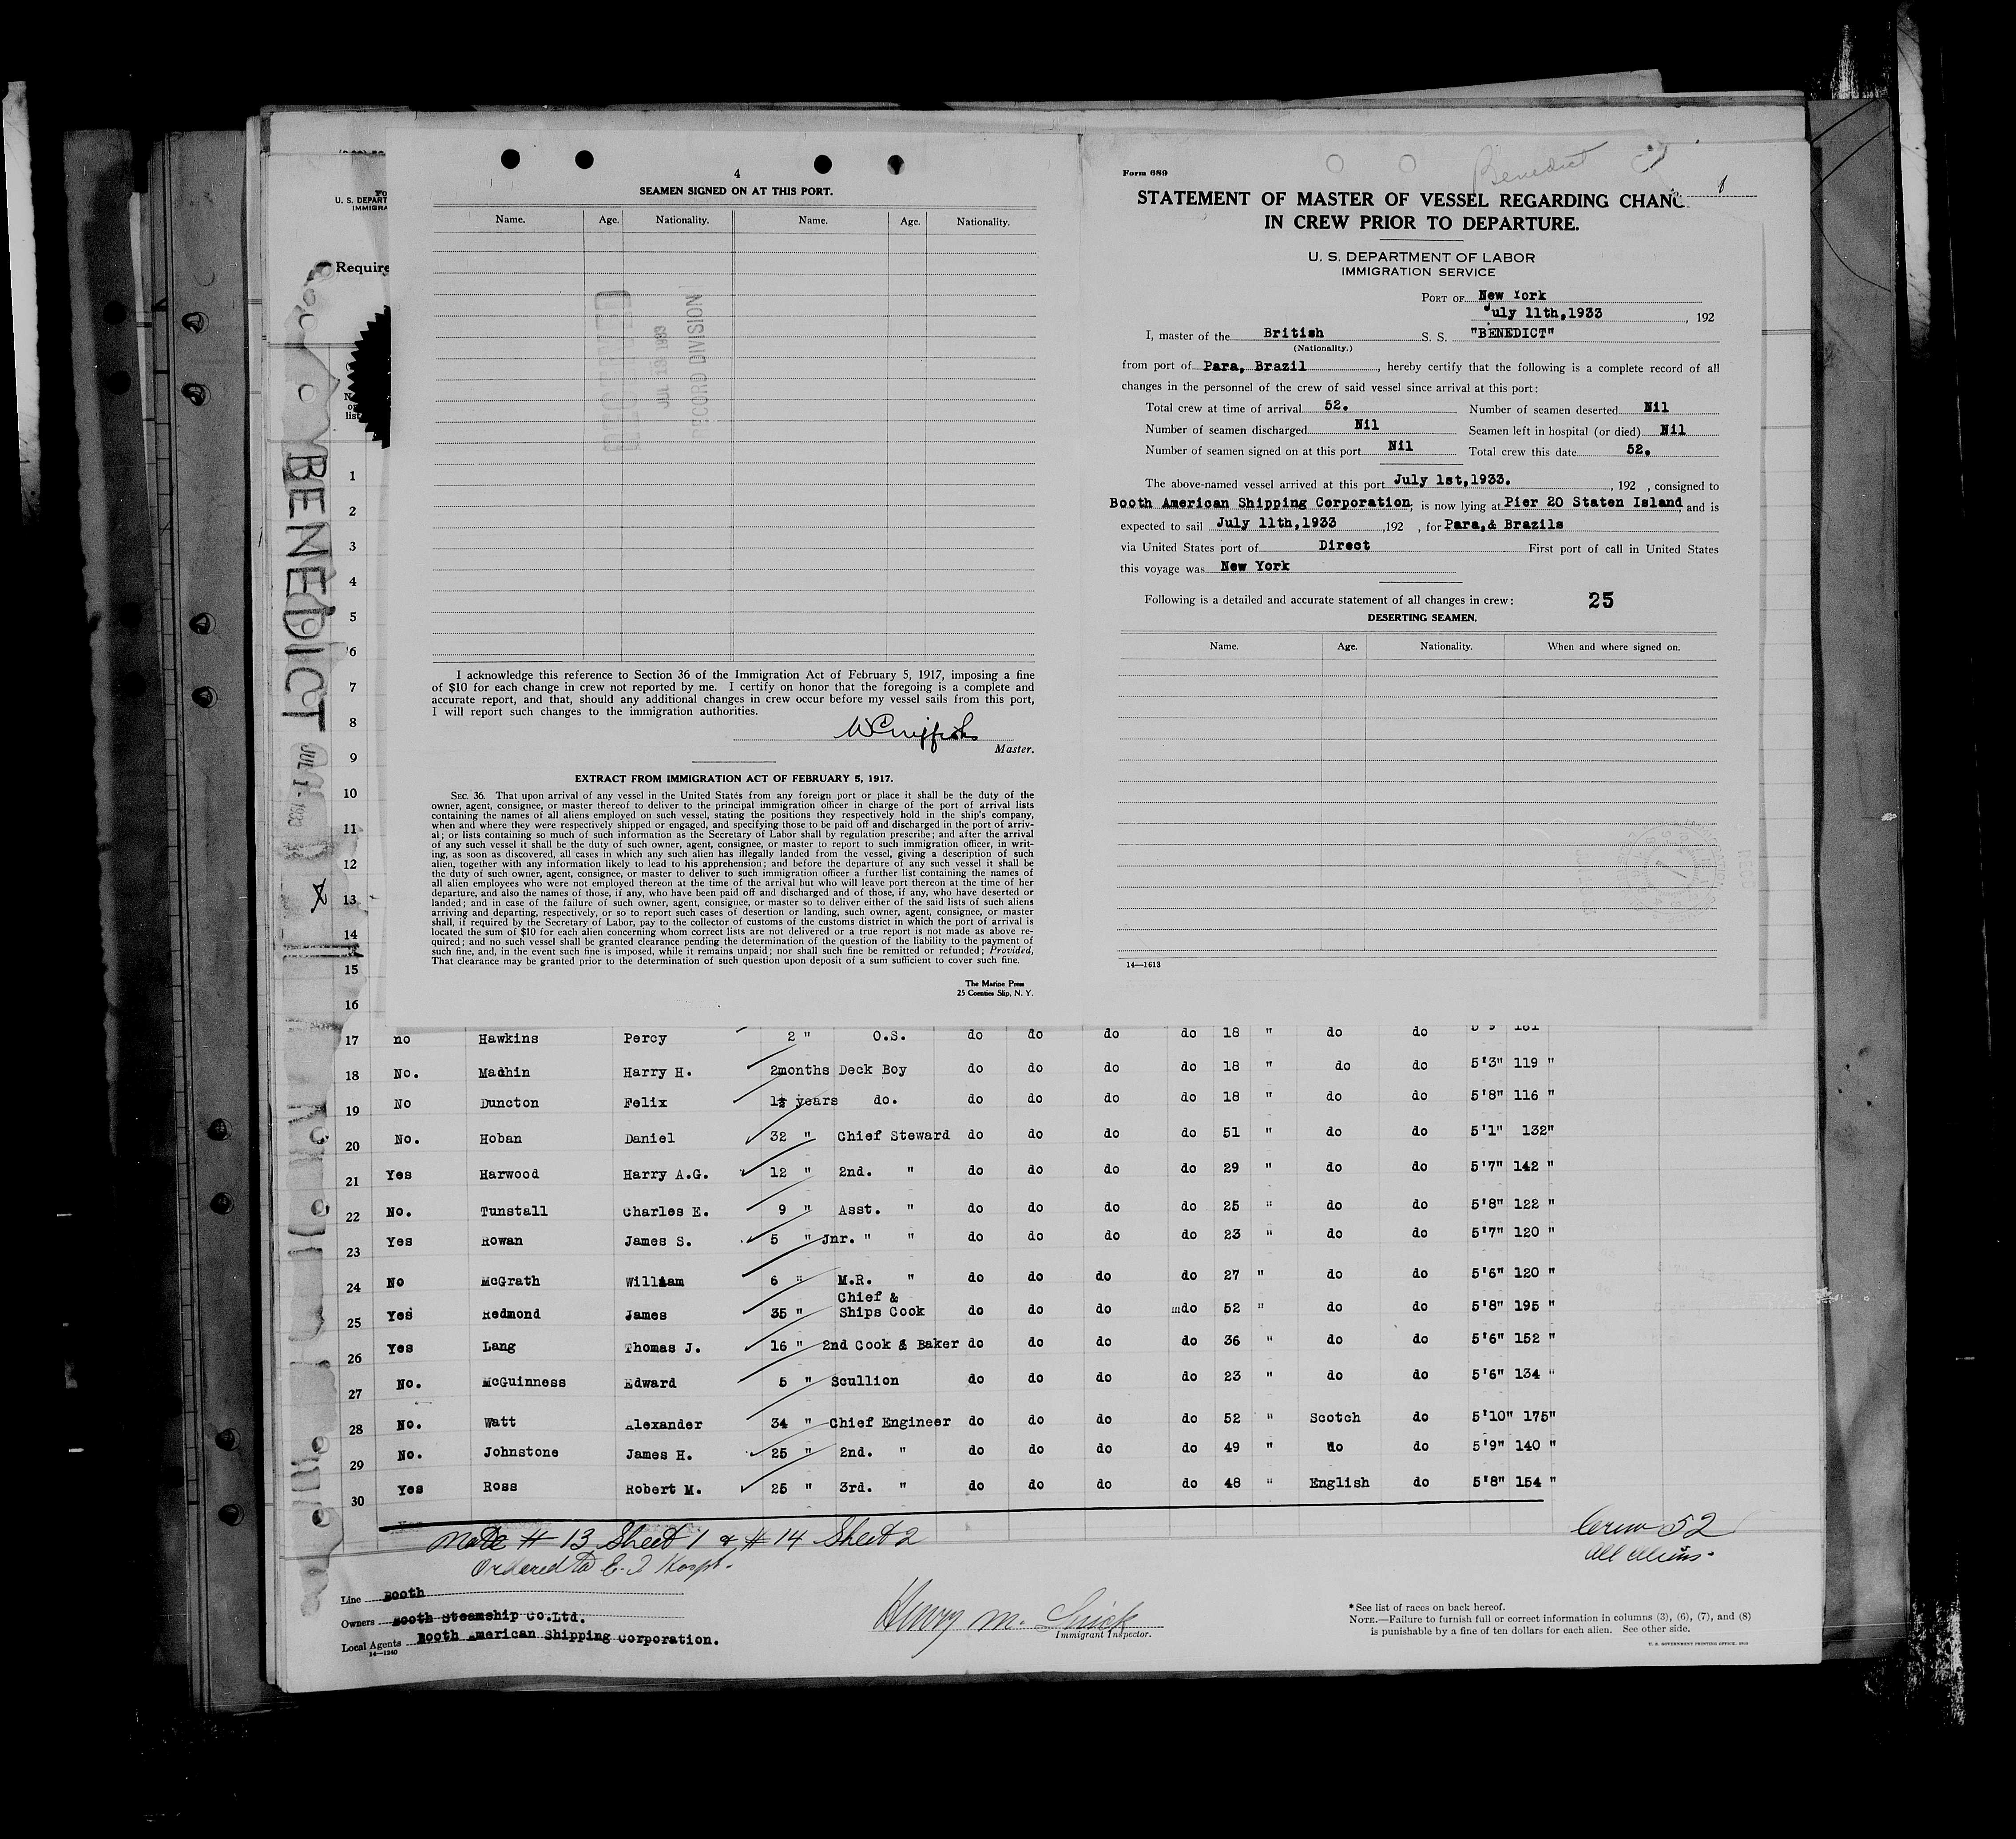 4
SEAMEN SIGNED ON AT THIS PORT.
Name. Age. Nationality. Name. Age. Nationality.
RECEIVED
JUL 13 1933
RECORD DIVISION
I acknowledge this reference to Section 36 of the Immigration Act of February 5, 1917, imposing a fine
of $10 for each change in crew not reported by me. I certify on honor that the foregoing is a complete and
accurate report, and that, should any additional changes in crew occur before my vessel sails from this port,
I will report such changes to the immigration authorities.
Master.
EXTRACT FROM IMMIGRATION ACT OF FEBRUARY 5, 1917.
SEC. 36. That upon arrival of any vessel in the United States from any foreign port or place it shall be the duty of the
owner, agent, consignee, or master thereof to deliver to the principal immigration officer in charge of the port of arrival lists
containing the names of all aliens employed on such vessel, stating the positions they respectively hold in the ship's company,
when and where they were respectively shipped or engaged, and specifying those to be paid off and discharged in the port of arriv-
al; or lists containing so much of such information as the Secretary of Labor shall by regulation prescribe; and after the arrival
of any such vessel it shall be the duty of such owner, agent, consignee, or master to report to such immigration officer, in writ-
ing, as soon as discovered, all cases in which any such alien has illegally landed from the vessel, giving a description of such
alien, together with any information likely to lead to his apprehension; and before the departure of any such vessel it shall be
the duty of such owner, agent, consignee, or master to deliver to such immigration officer a further list containing the names of
all alien employees who were not employed thereon at the time of the arrival but who will leave port thereon at the time of her
departure, and also the names of those, if any, who have been paid off and discharged and of those, if any, who have deserted or
landed; and in case of the failure of such owner, agent, consignee, or master so to deliver either of the said lists of such aliens
arriving and departing, respectively, or so to report such cases of desertion or landing, such owner, agent, consignee, or master
shall, if required by the Secretary of Labor, pay to the collector of customs of the customs district in which the port of arrival is
located the sum of $10 for each alien concerning whom correct lists are not delivered or a true report is not made as above re-
quired; and no such vessel shall be granted clearance pending the determination of the question of the liability to the payment of
such fine, and, in the event such fine is imposed, while it remains unpaid; nor shall such fine be remitted or refunded; Provided,
That clearance may be granted prior to the determination of such question upon deposit of a sum sufficient to cover such fine.
The Marine Press
25 Coenties Slip, N. Y.
Benedict
Form 689
STATEMENT OF MASTER OF VESSEL REGARDING CHANG
IN CREW PRIOR TO DEPARTURE.
U. S. DEPARTMENT OF LABOR
IMMIGRATION SERVICE
PORT OF New York
July 11th,1933, 192
I, master of the British S. S. "BENEDICT"
(Nationality.)
from port of Para, Brazil, hereby certify that the following is a complete record of all
changes in the personnel of the crew of said vessel since arrival at this port:
Total crew at time of arrival 52. Number of seamen deserted Nil
Number of seamen discharged Nil Seamen left in hospital (or died) Nil
Number of seamen signed on at this port Nil Total crew this date 52.
The above-named vessel arrived at this port July 1st,1933., 192 , consigned to
Booth American Shipping Corporation, is now lying at Pier 20 Staten Island, and is
expected to sail July 11th,1933 ,192 , for Para,& Brazils
via United States port of Direct First port of call in United States
this voyage was New York
Following is a detailed and accurate statement of all changes in crew: 25
DESERTING SEAMEN.
Name. Age. Nationality. When and where signed on.
14—1613
U. S. DEPART
IMMIGRA
Require
BENEDICT JUL 1 - 1933
1
2
3
4
5
6
7
8
9
10
11
12
13
14
15
16
17 no Hawkins Percy 2 " O.S. do do do do 18 " do do 5'9
18 No. Madhin Harry H. 2months Deck Boy do do do do 18 " do do 5'3" 119 "
19 No Duncton Felix 1½ years do. do do do do 18 " do do 5'8" 116 "
20 No. Hoban Daniel 32 " Chief Steward do do do do 51 " do do 5'1" 132"
21 Yes Harwood Harry A.G. 12 " 2nd. " do do do do 29 " do do 5'7" 142 "
22 No. Tunstall Charles E. 9 " Asst. " do do do do 25 " do do 5'8" 122 "
23 Yes Rowan James S. 5 " Jnr. " " do do do do 23 " do do 5'7" 120 "
24 No McGrath William 6 " M.R. " do do do do 27 " do do 5'6" 120 "
25 Yes Redmond James 35 " Chief & Ships Cook do do do do 52 " do do 5'8" 195 "
26 Yes Lang Thomas J. 16 " 2nd Cook & Baker do do do do 36 " do do 5'6" 152 "
27 No. McGuinness Edward 5 " Scullion do do do do 23 " do do 5'6" 134 "
28 No. Watt Alexander 34 " Chief Engineer do do do do 52 " Scotch do 5'10" 175"
29 No. Johnstone James H. 25 " 2nd. " do do do do 49 " do do 5'9" 140 "
30 Yes Ross Robert M. 25 " 3rd. " do do do do 48 " English do 5'8" 154 "
Note # 13 Sheet 1 & # 14 Sheet 2
Ordered to E. I Hospt.
Crew 52
All Aliens.
Line Booth
Owners Booth Steamship Co.Ltd.
Local Agents Booth American Shipping Corporation.
14—1240
Henry M.
Immigrant Inspector.
* See list of races on back hereof.
NOTE.—Failure to furnish full or correct information in columns (3), (6), (7), and (8)
is punishable by a fine of ten dollars for each alien. See other side.
U. S. GOVERNMENT PRINTING OFFICE